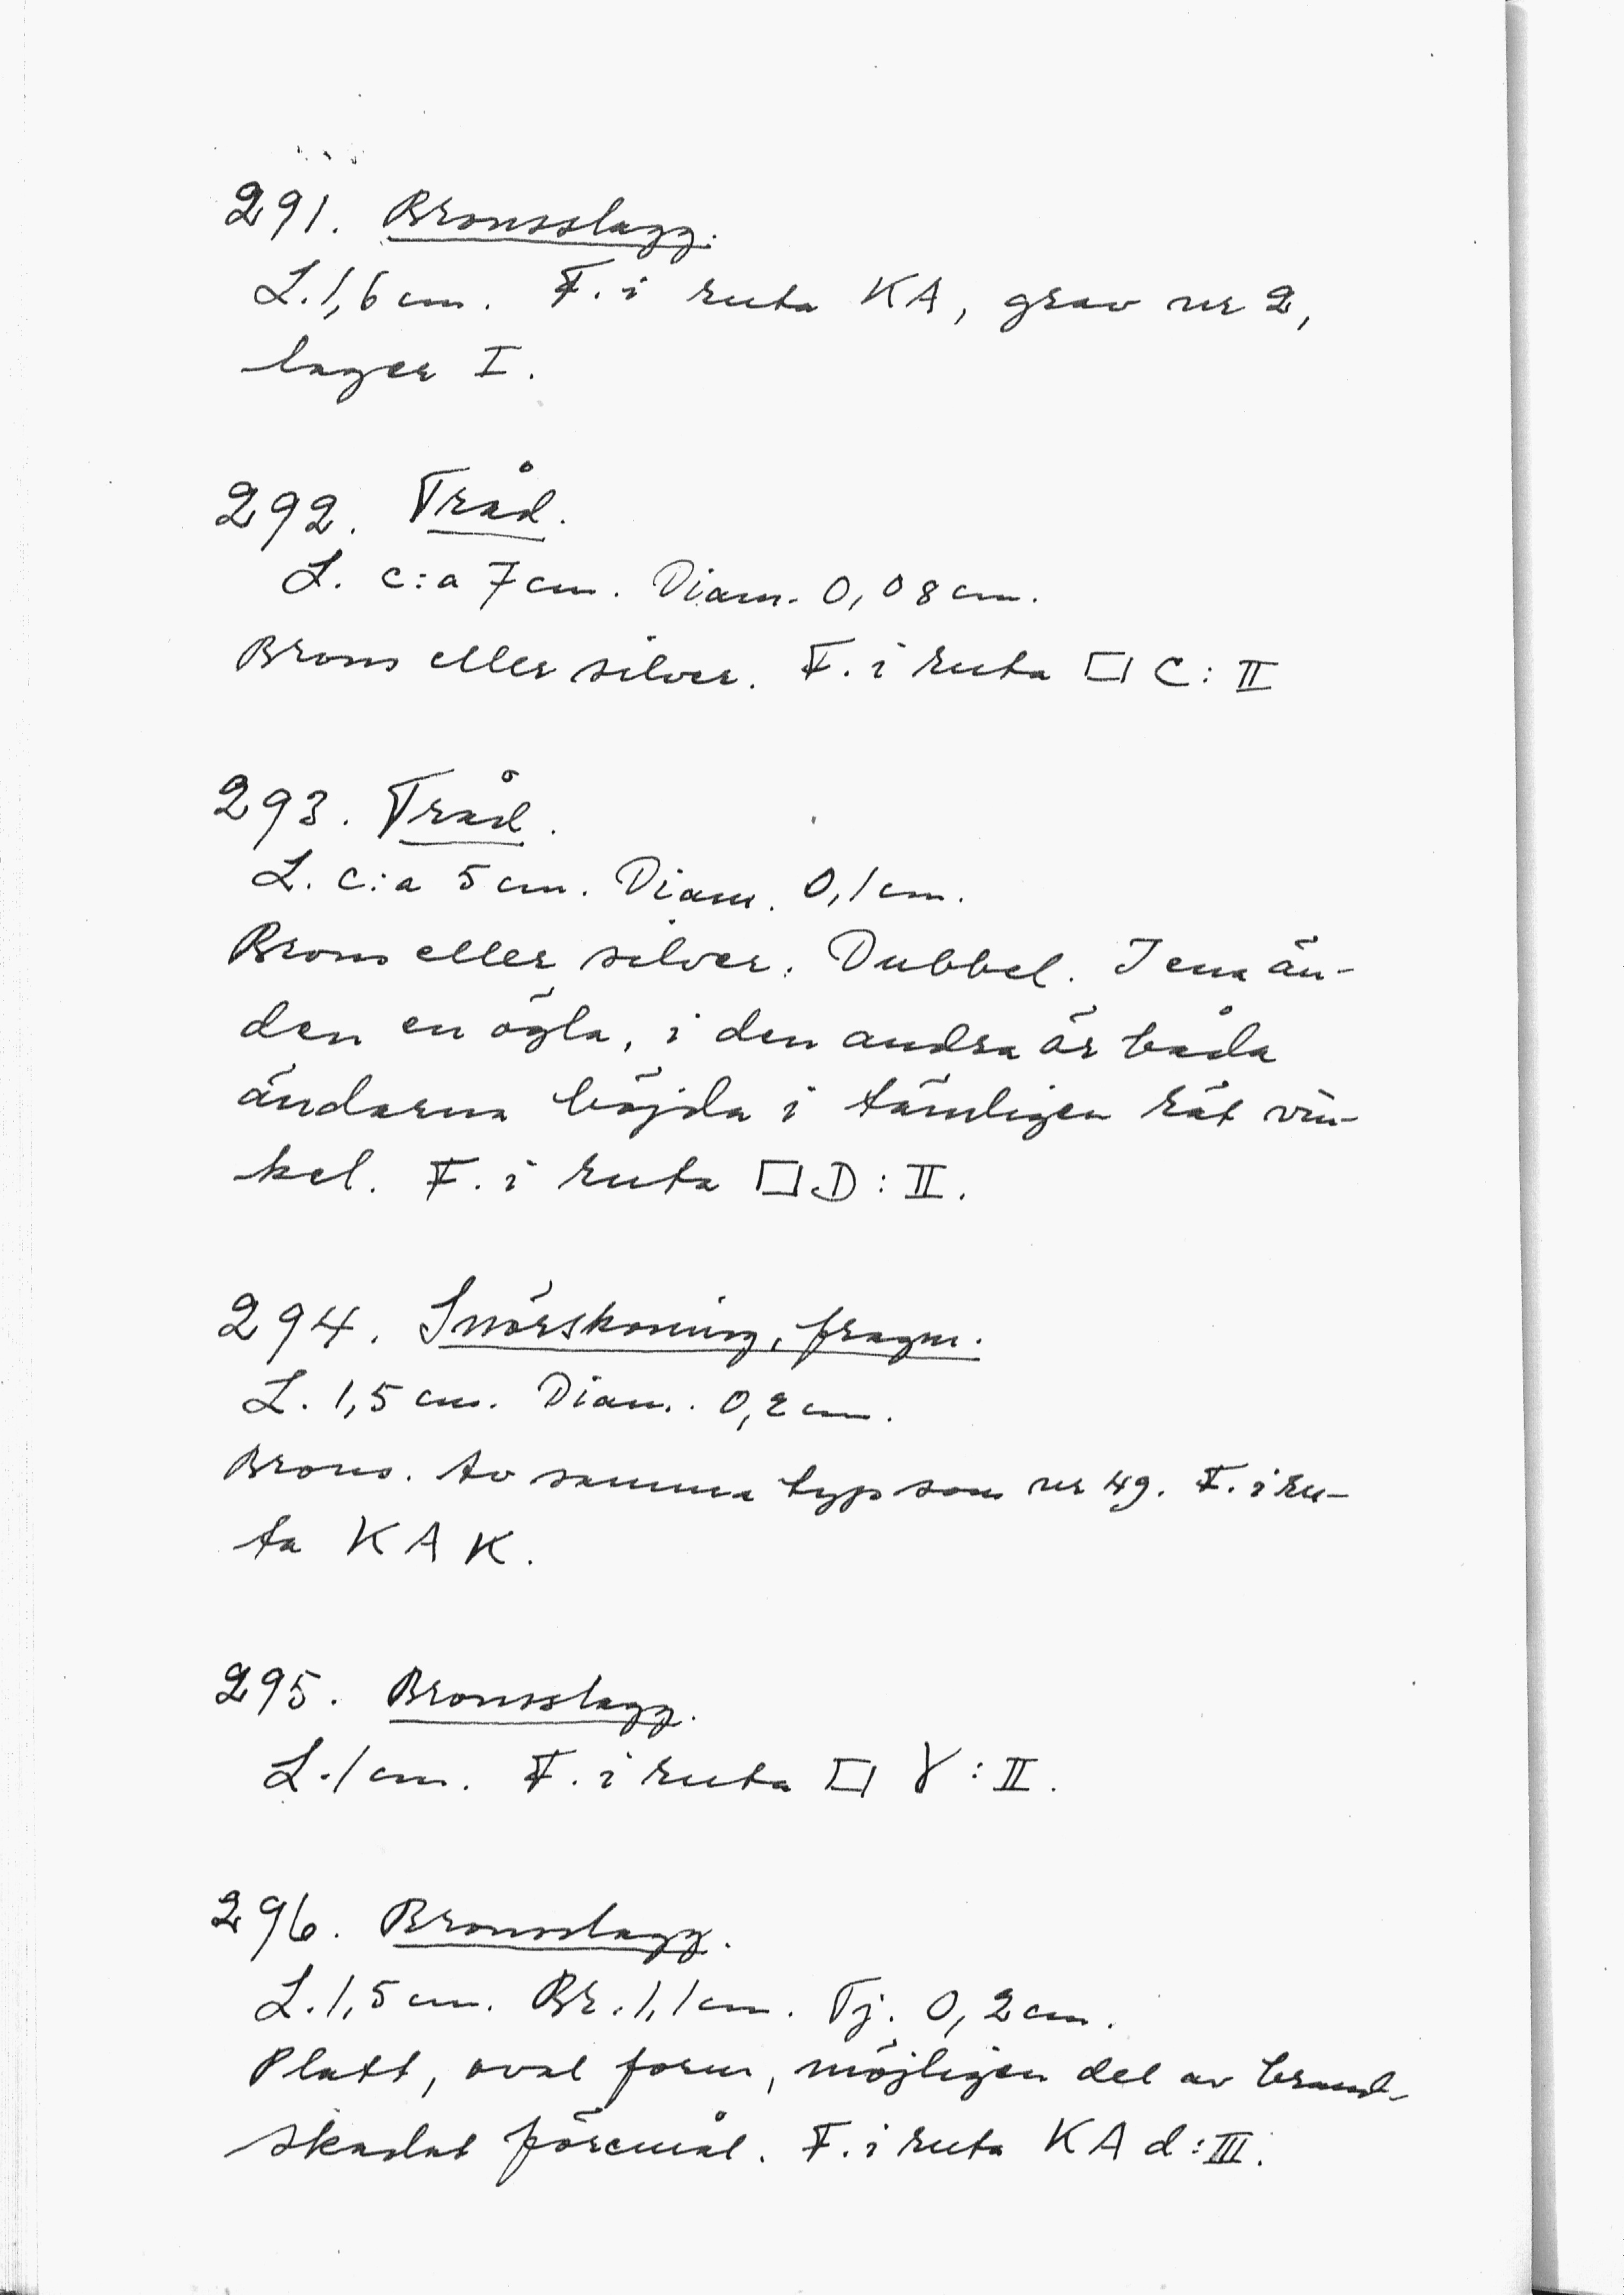 291. Bronsslagg.
L. 1,6 cm. F. i ruta KA, grav nr 2,
lager I.
292. Tråd.
L. c:a 7 cm. Diam. 0,08 cm.
Brons eller silver. F. i ruta □ C: II
293. Tråd.
L. c:a 5 cm. Diam. 0,1 cm.
Brons eller silver. Dubbel. I ena än-
den en ögla, i den andra är båda
ändarna böjda i tämligen rät vin-
kel. F. i ruta □ D: II.
294. Snörskoning, fragm.
L. 1,5 cm. Diam. 0,2 cm.
Brons. Av samma typ som nr 49. F. i ru-
ta KAK.
295. Bronsslagg.
L. 1 cm. F. i ruta □ γ: II.
296. Bronsslagg.
L. 1,5 cm. Br. 1,1 cm. Tj. 0,2 cm.
Platt, oval form, möjligen del av brand-
skadat föremål. F. i ruta KA d: III.